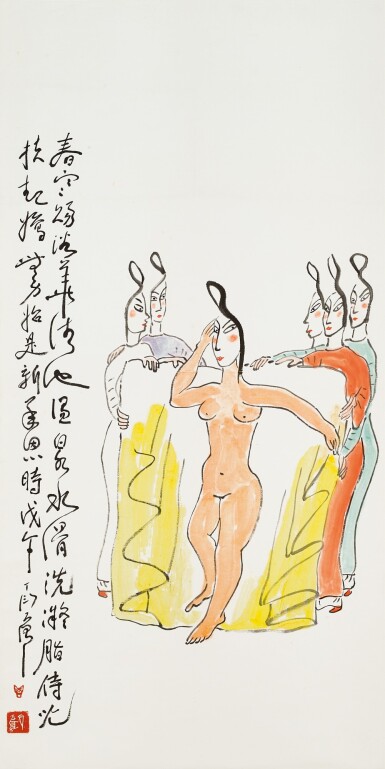 春寒賜浴華清池溫泉水滑洗凝脂侍兒
扶起嬌無力始是新承恩時戊午丁衍庸